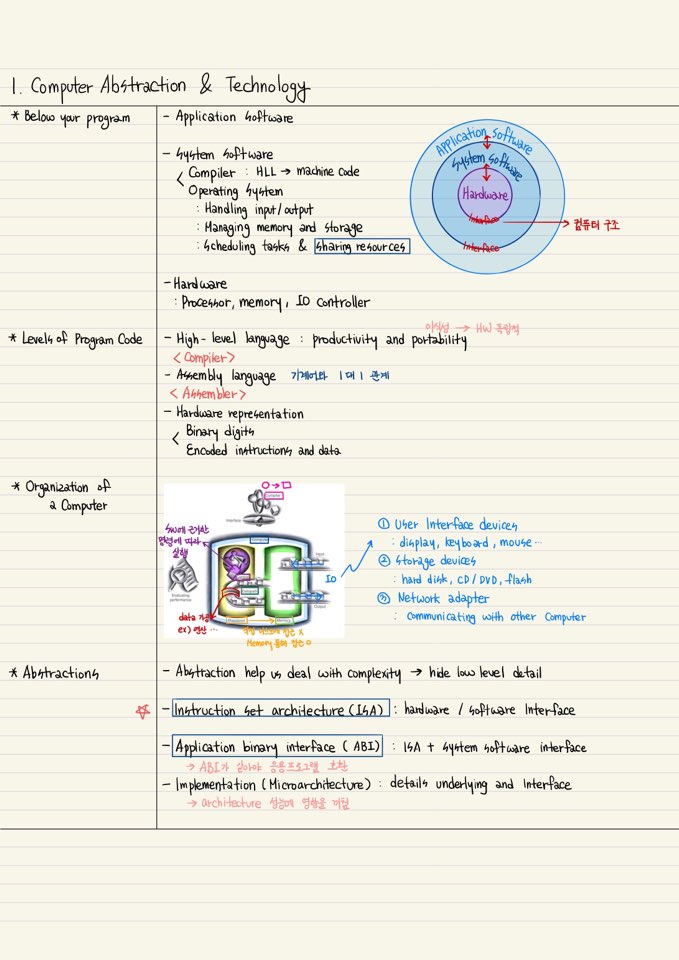 1. Computer Abstraction & Technology
* Below your program
- Application software
- System software
Compiler : HLL → machine code
Operating System
: Handling input/output
: Managing memory and storage
: Scheduling tasks & sharing resources
- Hardware
: Processor, memory, IO Controller
Application Software
System software
Hardware
Interface
→ 컴퓨터 구조
Interface
* Levels of Program Code
이식성 → HW 독립적
- High-level language : productivity and portability
< Compiler >
- Assembly language 기계어와 1대1 관계
< Assembler >
- Hardware representation
Binary digits
Encoded instructions and data
* Organization of
a Computer
Compiler
Interface
Computer
SW에 근거한
명령에 따라
실행
Evaluating
performance
Input
Output
IO
Memory
ex) 연산 ...
Memory 통해 접근 O
① User Interface devices
: display, keyboard, mouse ...
② Storage devices
: hard disk, CD/DVD, flash
③ Network adapter
: communicating with other Computer
* Abstractions
- Abstraction help us deal with complexity → hide low level detail
- Instruction set architecture (ISA) : hardware / software Interface
- Application binary interface (ABI) : ISA + system software interface
→ ABI가 같아야 응용프로그램 호환
- Implementation (Microarchitecture) : details underlying and Interface
→ architecture 성능에 영향을 끼침